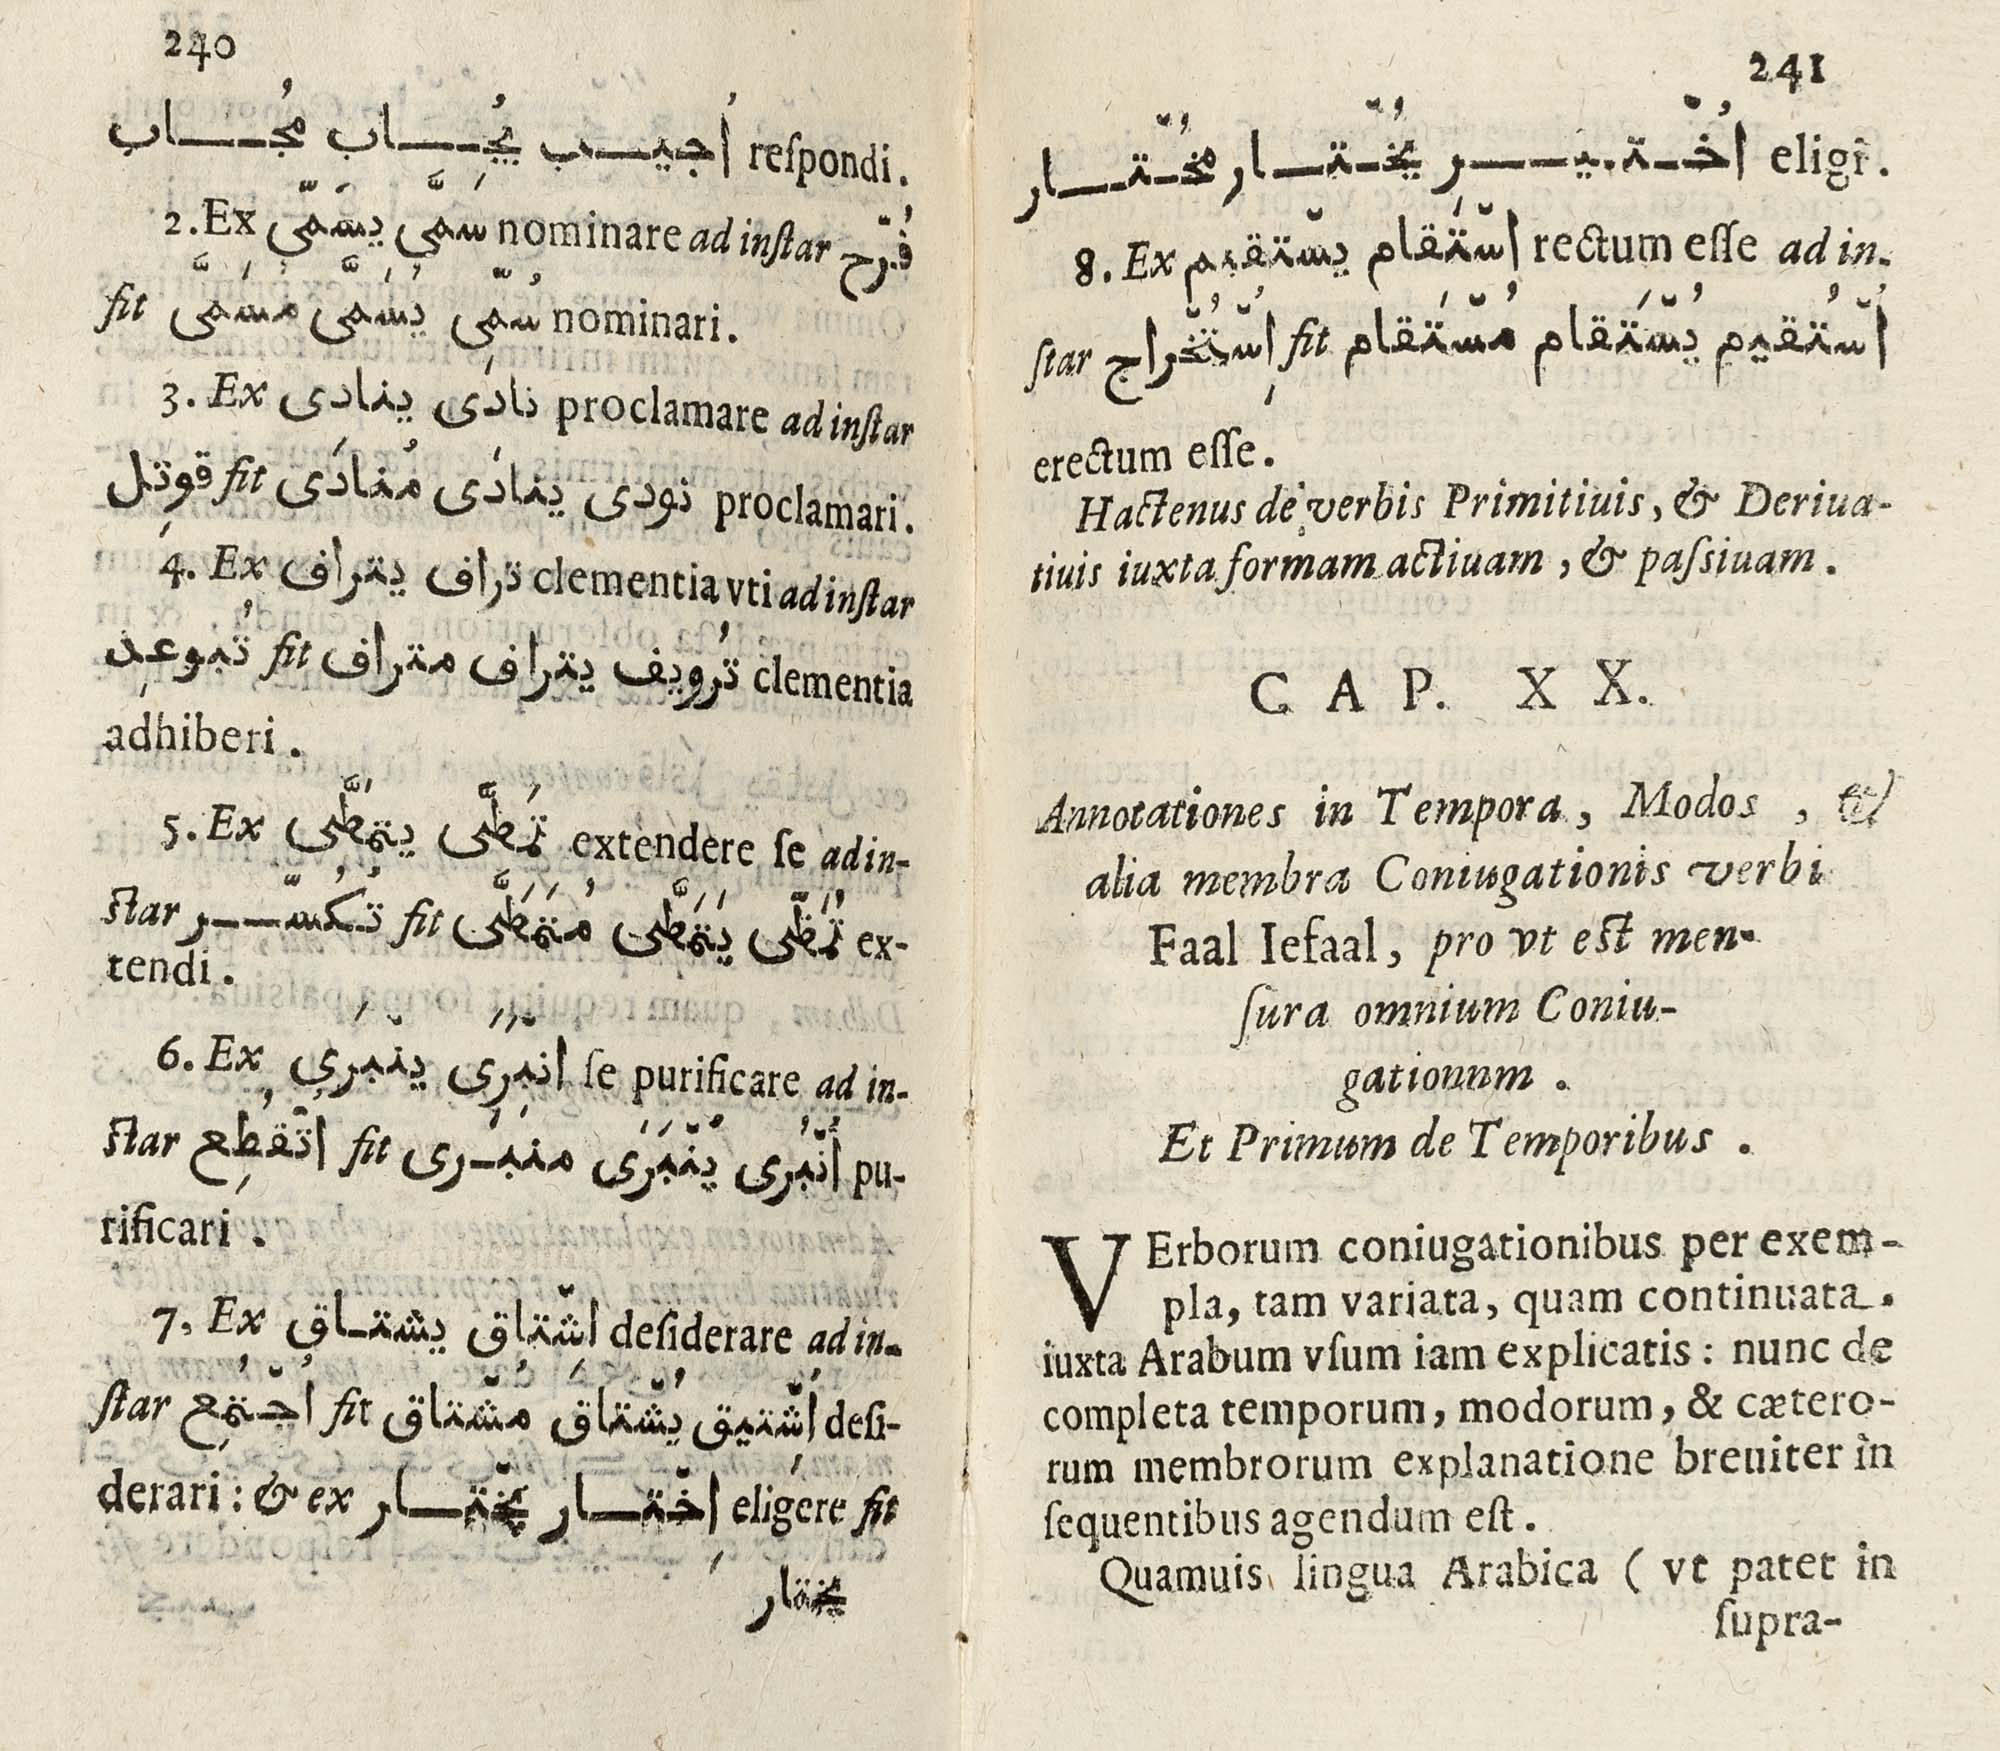 240
اُجيـب يُجـاب مُجـاب reſpondi.
2. Ex سمَّى يسَمِّى nominare ad inſtar فُرِّح
fit سُمِّى يُسَمَّى مُسَمَّى nominari.
3. Ex نادَى ينادِى proclamare ad inſtar
قوتِل fit نودى ينادَى مُنادَى proclamari.
4. Ex تراف يتراف clementia vti ad inſtar
تُبوعِد fit تُرُويف يتراف متراف clementia
adhiberi.
5. Ex تمَطَّى يتمَطَّى extendere ſe ad in-
ſtar تُكُسّـر fit تُمُطِّى يَتَمَطَّى مُتَمَطَّى ex-
tendi.
6. Ex انْبَرِى ينْبَرِي ſe purificare ad in-
ſtar اتْقُطِع fit اُنْبُرى يُنْبَرَى منبـرى pu-
rificari.
7, Ex اشْتاق يشتـاق deſiderare ad in-
ſtar اُجْتُمِع fit اُشْتيق يُشْتاق مُشْتاق deſi-
derari: & ex اِخْتـار يخْتـار eligere fit
يختار
241
اُخْتـيـر يُخْتـار مُخْتـار eligi.
8. Ex اسْتَقام يسْتقيم rectum eſſe ad in-
ſtar اِسْتُخْراج fit اُسْتُقيم يُسْتَقام مُسْتَقام
erectum eſſe.
Hactenus de verbis Primitiuis, & Deriua-
tiuis iuxta formam actiuam, & paſsiuam.
CAP. XX.
Annotationes in Tempora, Modos, &
alia membra Coniugationis verbi
Faal Iefaal, pro vt eſt men-
ſura omnium Coniu-
gationum.
Et Primum de Temporibus.
VErborum coniugationibus per exem-
pla, tam variata, quam continuata.
iuxta Arabum vſum iam explicatis: nunc de
completa temporum, modorum, & cætero-
rum membrorum explanatione breuiter in
ſequentibus agendum eſt.
Quamuis lingua Arabica ( vt patet in
ſupra-